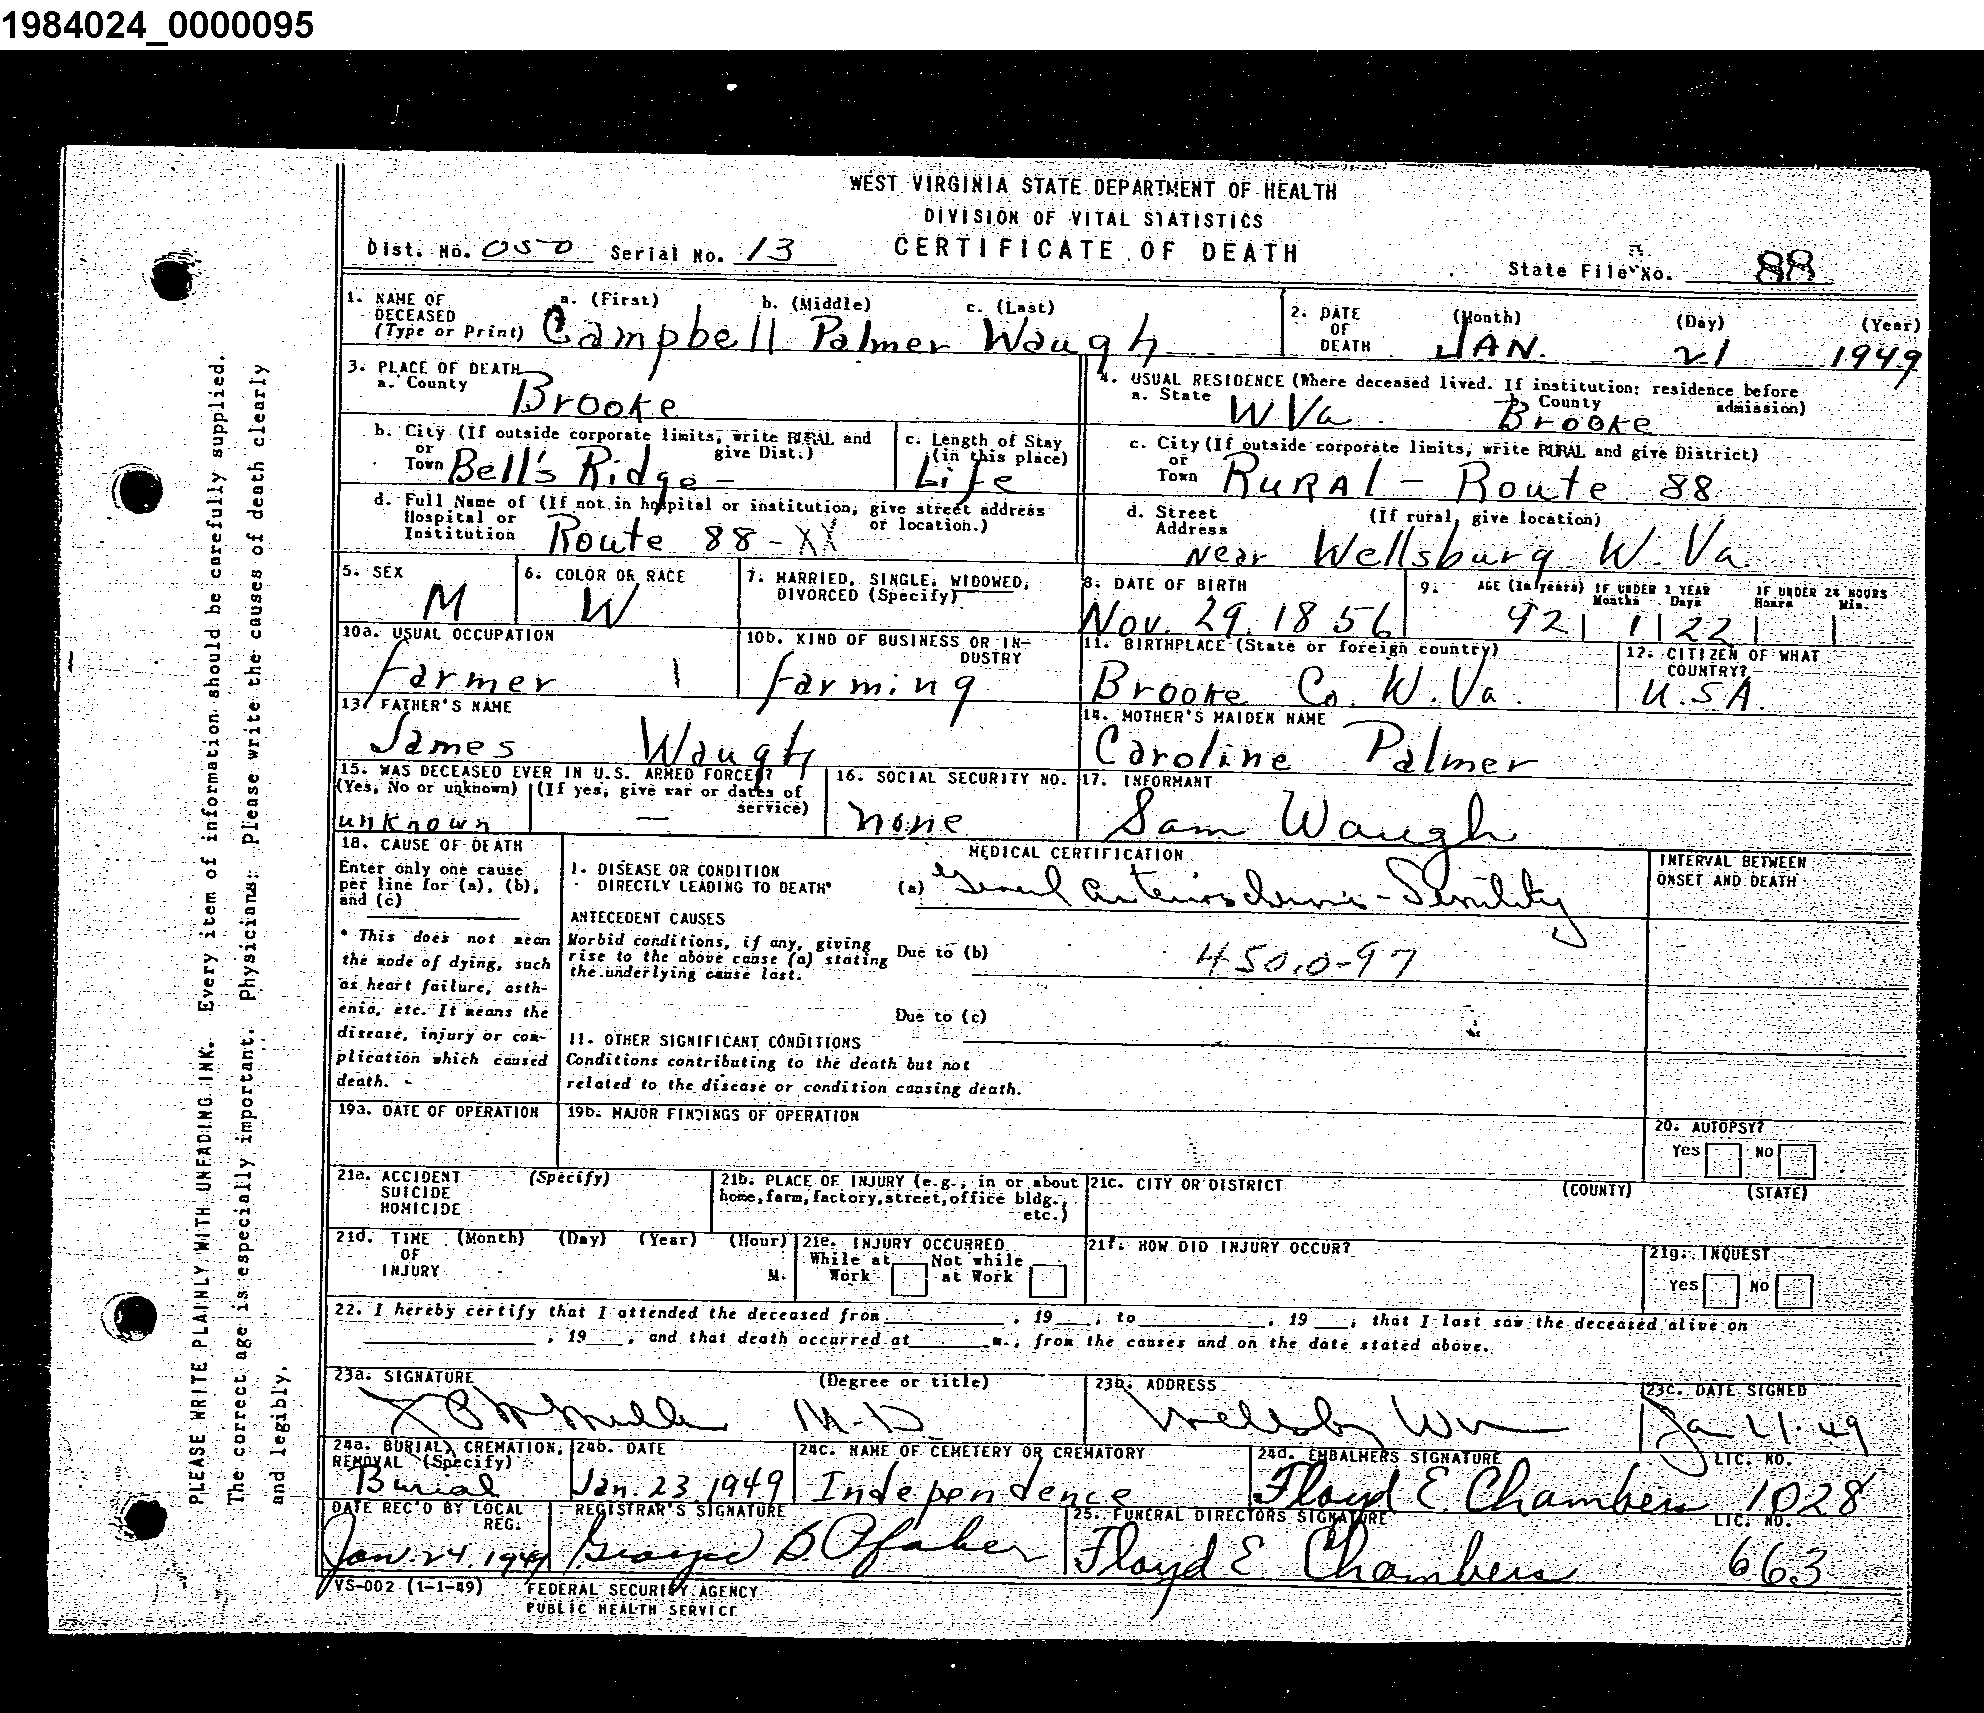 1984024_0000095
WEST VIRGINIA STATE DEPARTMENT OF HEALTH
DIVISION OF VITAL STATISTICS
Dist. No. 050 Serial No. 13 CERTIFICATE OF DEATH
State File No. 88
1. NAME OF DECEASED (Type or Print) a. (First) b. (Middle) c. (Last)
Campbell Palmer Waugh
2. DATE OF DEATH (Month) (Day) (Year)
JAN. 21 1949
3. PLACE OF DEATH
a. County Brooke
4. USUAL RESIDENCE (Where deceased lived. If institution: residence before admission)
a. State W Va County Brooke
b. City (If outside corporate limits, write RURAL and give Dist.)
or Town Bell's Ridge -
c. Length of Stay (in this place)
Life
c. City (If outside corporate limits, write RURAL and give District)
or Town RURAL - Route 88
d. Full Name of (If not in hospital or institution, give street address or location.)
Hospital or Institution Route 88 - XX
d. Street Address (If rural, give location)
Near Wellsburg W. Va
5. SEX
M
6. COLOR OR RACE
W
7. MARRIED, SINGLE, WIDOWED, DIVORCED (Specify)
8. DATE OF BIRTH
Nov. 29. 1856
9. AGE (In years) IF UNDER 1 YEAR Months Days IF UNDER 24 HOURS Hours Min.
92 1 22
10a. USUAL OCCUPATION
Farmer 1
10b. KIND OF BUSINESS OR INDUSTRY
farming
11. BIRTHPLACE (State or foreign country)
Brooke Co. W. Va.
12. CITIZEN OF WHAT COUNTRY?
U.S.A.
13. FATHER'S NAME
James Waugh
14. MOTHER'S MAIDEN NAME
Caroline Palmer
15. WAS DECEASED EVER IN U.S. ARMED FORCES?
(Yes, No or unknown) (If yes, give war or dates of service)
unknown —
16. SOCIAL SECURITY NO.
none
17. INFORMANT
Sam Waugh
18. CAUSE OF DEATH
Enter only one cause per line for (a), (b), and (c)
* This does not mean the mode of dying, such as heart failure, asthenia, etc. It means the disease, injury or complication which caused death.
MEDICAL CERTIFICATION
INTERVAL BETWEEN ONSET AND DEATH
I. DISEASE OR CONDITION DIRECTLY LEADING TO DEATH*
(a) General arteriosclerosis - Senility
ANTECEDENT CAUSES
Morbid conditions, if any, giving rise to the above cause (a) stating the underlying cause last.
Due to (b)
450.0-97
Due to (c)
II. OTHER SIGNIFICANT CONDITIONS
Conditions contributing to the death but not related to the disease or condition causing death.
19a. DATE OF OPERATION
19b. MAJOR FINDINGS OF OPERATION
20. AUTOPSY?
Yes No
21a. ACCIDENT SUICIDE HOMICIDE (Specify)
21b. PLACE OF INJURY (e.g., in or about home, farm, factory, street, office bldg., etc.)
21c. CITY OR DISTRICT (COUNTY) (STATE)
21d. TIME OF INJURY (Month) (Day) (Year) (Hour) M.
21e. INJURY OCCURRED
While at Work Not while at Work
21f. HOW DID INJURY OCCUR?
21g. INQUEST
Yes No
22. I hereby certify that I attended the deceased from , 19 , to , 19 , that I last saw the deceased alive on
, 19 , and that death occurred at m., from the causes and on the date stated above.
23a. SIGNATURE (Degree or title)
M.D
23b. ADDRESS
23c. DATE SIGNED
24a. BURIAL, CREMATION, REMOVAL (Specify)
Burial
24b. DATE
Jan. 23, 1949
24c. NAME OF CEMETERY OR CREMATORY
Independence
24d. EMBALMERS SIGNATURE LIC. NO.
Floyd E. Chambers 1028
DATE REC'D BY LOCAL REG.
Jan. 24. 1949
REGISTRAR'S SIGNATURE
25. FUNERAL DIRECTORS SIGNATURE LIC. NO.
Floyd E Chambers 663
VS-002 (1-1-49) FEDERAL SECURITY AGENCY
PUBLIC HEALTH SERVICE
PLEASE WRITE PLAINLY WITH UNFADING INK. Every item of information should be carefully supplied.
The correct age is especially important. Physicians: Please write the causes of death clearly
and legibly.